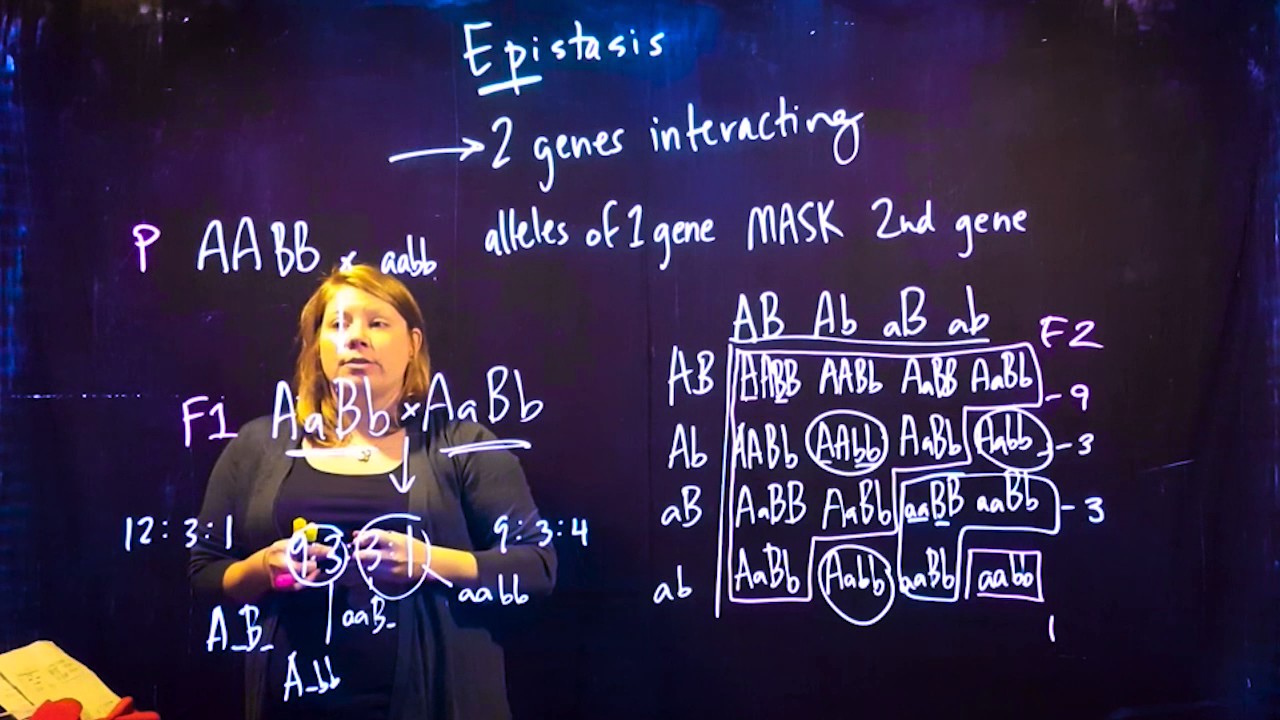 Epistasis
→ 2 genes interacting
alleles of 1 gene MASK 2nd gene
P AABB x aabb
F1 AaBb x AaBb
12:3:1
9:3:3:1
9:3:4
A_B_
A_bb
aaB_
aabb
AB Ab aB ab
F2
AB AABB AABb AaBB AaBb - 9
Ab AABb AAbb AaBb Aabb - 3
aB AaBB AaBb aaBB aaBb - 3
ab AaBb Aabb aaBb aabb
1